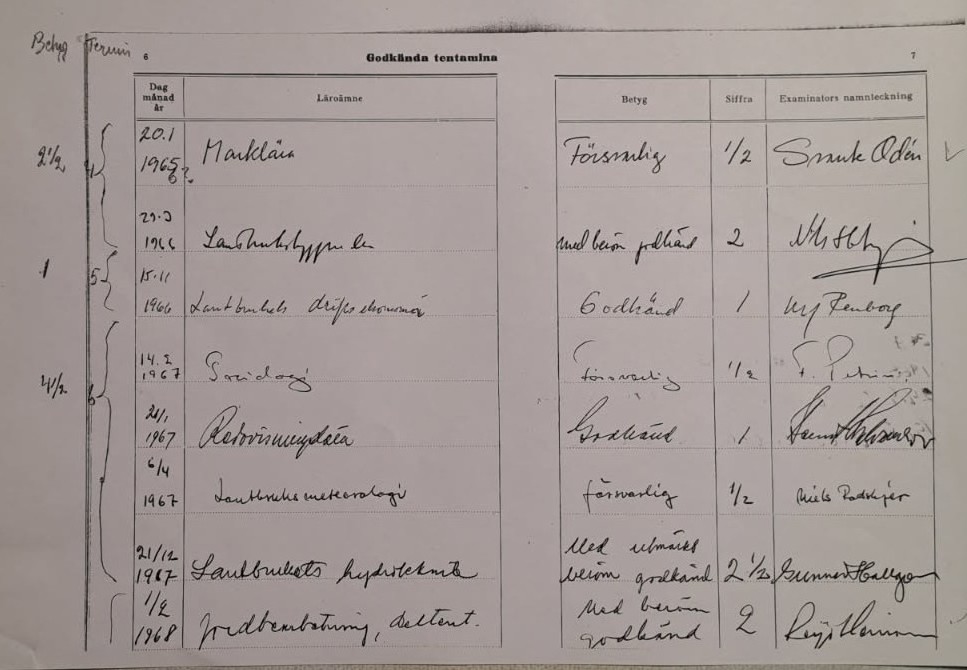 Betyg Termin
6 Godkända tentamina 7
Dag månad år Läroämne Betyg Siffra Examinators namnteckning
2 1/2
20.1 1965 Marklära Försvarlig 1/2 Odén
29.3 1966 med beröm godkänd 2
1 5
15.11 1966 Lantbrukets driftsekonomi Godkänd 1 Renborg
4 1/2 6
14.2 1967 Sociologi Försvarlig 1/2 F. Petrini
1967 Redovisningslära Godkänd 1
6/4 1967 Lantbruksmeteorologi försvarlig 1/2 Niels
21/12 1967 Lantbrukets hydroteknik Med utmärkt beröm godkänd 2 1/2 Gunnar Hallgren
1/2 1968 Jordbearbetning, deltent. Med beröm godkänd 2